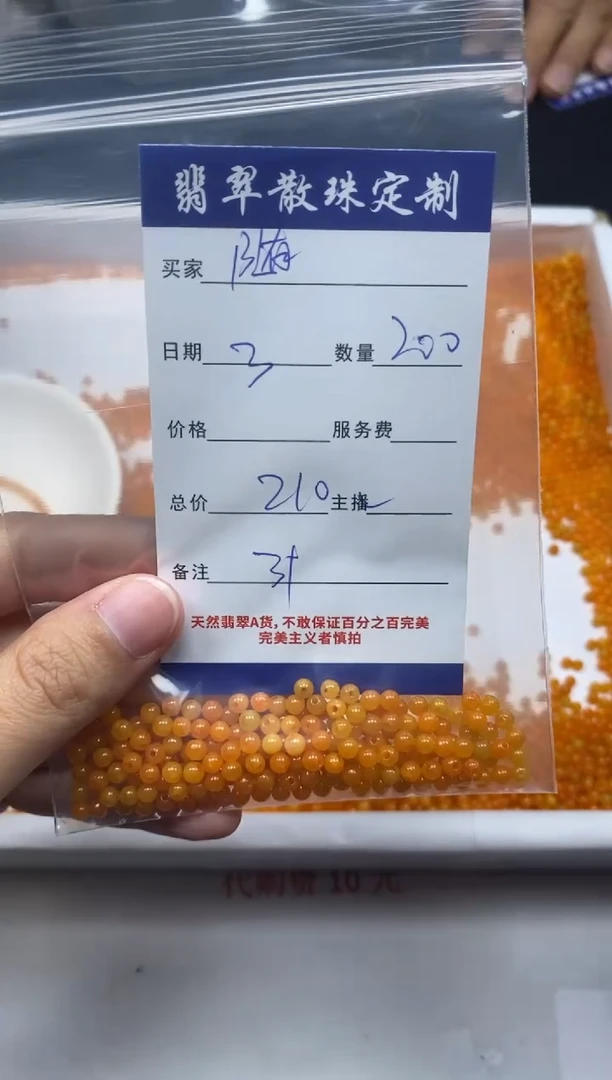 翡翠散珠定制
买家 随
日期 3 数量 200
价格 服务费
总价 210 主播
备注 3忄
天然翡翠A货,不敢保证百分之百完美
完美主义者慎拍
代购费 10 元